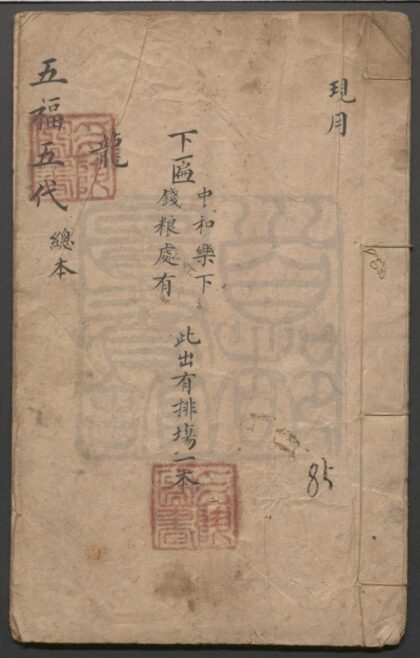 現用
85
下匾
中和樂下
錢粮處有
此出有排場一本
龍
五福五代
總本